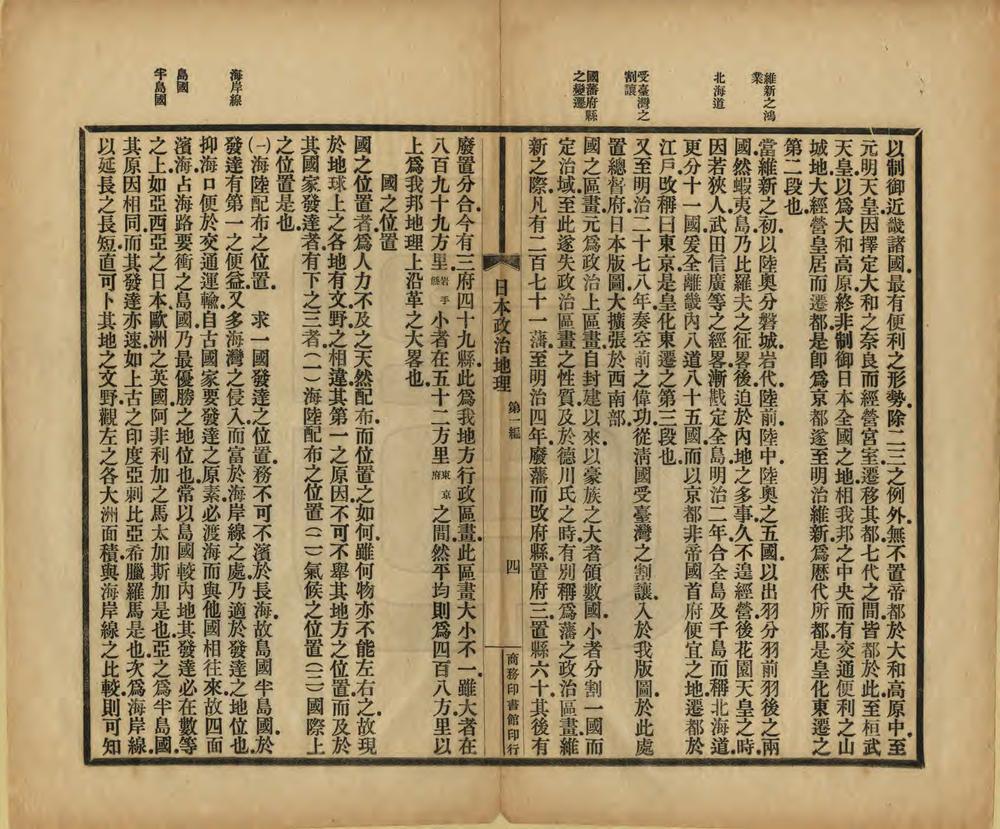 維新之鴻
業
北海道
受臺灣之
割讓
國藩府縣
之變遷
以制御近畿諸國最有便利之形勢除二三之例外無不置帝都於大和高原中至
元明天皇因擇定大和之奈良而經營宮室遷移其都七代之間皆都於此至桓武
天皇以爲大和高原終非制御日本全國之地相我邦之中央而有交通便利之山
城地大經營皇居而遷都是卽爲京都遂至明治維新爲歷代所都是皇化東遷之
第二段也
當維新之初以陸奧分磐城岩代陸前陸中陸奧之五國以出羽分羽前羽後之兩
國然蝦夷島乃比羅夫之征畧後迫於內地之多事久不遑經營後花園天皇之時
因若狹人武田信廣等之經畧漸戡定全島明治二年合全島及千島而稱北海道
更分十一國爰全離畿內八道八十五國而以京都非帝國首府便宜之地遷都於
江戶改稱曰東京是皇化東遷之第三段也
又至明治二十七八年奏空前之偉功從淸國受臺灣之割讓入於我版圖於此處
置總督府日本版圖大擴張於西南部
國之區畫元爲政治上區畫自封建以來以豪族之大者領數國小者分割一國而
定治域至此遂失政治區畫之性質及於德川氏之時有別稱爲藩之政治區畫維
新之際凡有二百七十一藩至明治四年廢藩而改府縣置府三置縣六十其後有
日本政治地理 第一編 四 商務印書館印行
海岸線
島國
半島國
廢置分合今有三府四十九縣此爲我地方行政區畫此區畫大小不一雖大者在
八百九十九方里岩手縣小者在五十二方里東京府之間然平均則爲四百八方里以
上爲我邦地理上沿革之大畧也
國之位置
國之位置者爲人力不及之天然配布而位置之如何雖何物亦不能左右之故現
於地球上之各地有文野之相違其第一之原因不可不舉其地方之位置而及於
其國家發達者有下之三者(一)海陸配布之位置(二)氣候之位置(三)國際上
之位置是也
(一)海陸配布之位置 求一國發達之位置務不可不濱於長海故島國半島國於
發達有第一之便益又多海灣之侵入而富於海岸線之處乃適於發達之地位也
抑海口便於交通運輸自古國家要發達之原素必渡海而與他國相往來故四面
濱海占海路要衝之島國乃最優勝之地位也常以島國較內地其發達必在數等
之上如亞西亞之日本歐洲之英國阿非利加之馬太加斯加是也亞之爲半島國
其原因相同而其發達亦速如上古之印度亞剌比亞希臘羅馬是也次爲海岸線
以延長之長短直可卜其地之文野觀左之各大洲面積與海岸線之比較則可知